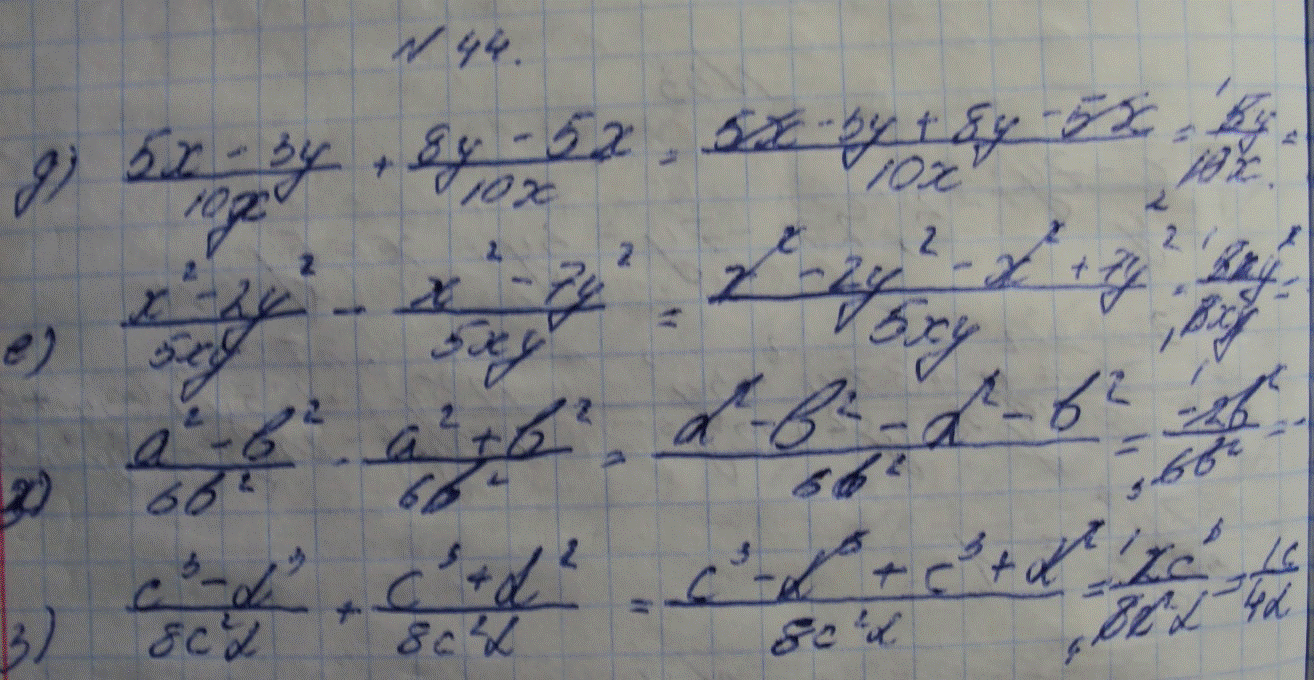 N 44.
д) (5x - 3y)/(10x) + (8y - 5x)/(10x) = (5x - 3y + 8y - 5x)/(10x) = (5y)/(10x) =
е) (x² - 2y²)/(5xy) - (x² - 7y²)/(5xy) = (x² - 2y² - x² + 7y²)/(5xy) = =
ж) (a² - b²)/(6b²) - (a² + b²)/(6b²) = (a² - b² - a² - b²)/(6b²) = (-2b²)/(6b²) = -
з) (c³ - d³)/(8c²d) + (c³ + d²)/(8c²d) = (c³ - d³ + c³ + d²)/(8c²d) = (2c³)/(8c²d) = (1c)/(4d)